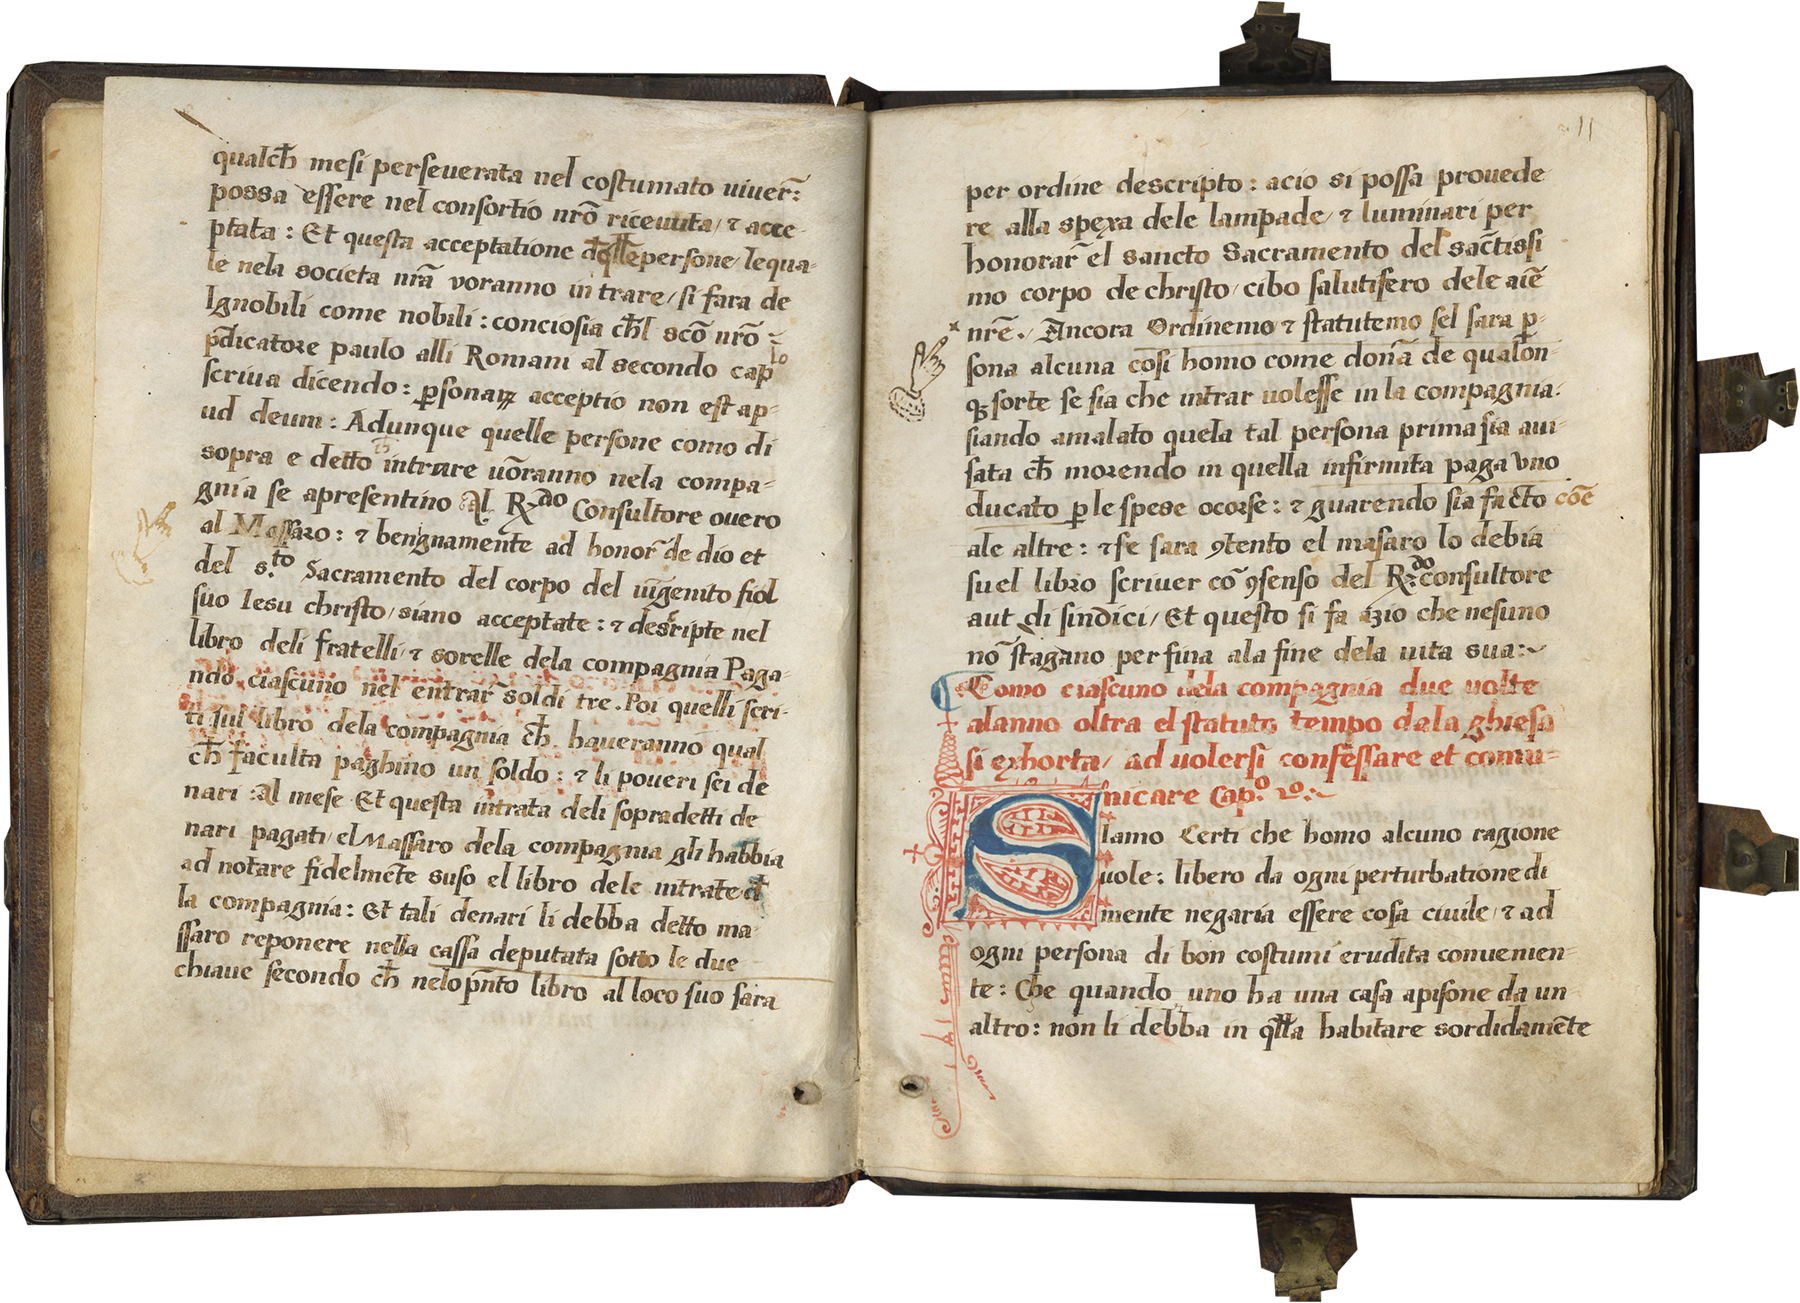 qualch̄ mesi perseuerata nel costumato uiuer̄:
possa essere nel consortio nr̄o riceuuta / ⁊ acce-
ptata : Et questa acceptatione persone / le qua-
le nela societa nr̄a voranno intrare / si fara de
Ignobili come nobili : conciosia ch̄l sc̄o nr̄o
p̄dicatore paulo alli Romani al secondo cap.lo
scriua dicendo : ꝑsonaꝝ acceptio non est ap-
ud deum : Adunque quelle persone como di
sopra e detto intrare uōranno nela compa-
gnia se apresentino Al R.do Consultore ouero
al Massaro : ⁊ benignamente ad honor̄ de dio et
del s.to Sacramento del corpo del uīgenito fiol
suo Iesu christo / siano acceptate : ⁊ descripte nel
libro deli fratelli / ⁊ sorelle dela compagnia Paga-
ndo ciascuno nel entrar̄ soldi tre . Poi quelli scri-
ti sul libro dela compagnia ch̄ haueranno qual
ch̄ faculta paghino un soldo : ⁊ li poueri sei de
nari : al mese Et questa intrata deli sopradetti de
nari pagati / el Massaro dela compagnia gli habbia
ad notare fidelmēte suso el libro dele intrate đ
la compagnia : Et tali denari li debba detto ma
ssaro reponere nella cassa deputata sotto le due
chiaue secondo ch̄ nelo pn̄to libro al loco suo sara
11
per ordine descripto : acio si possa prouede
re alla spexa dele lampade / ⁊ luminari per
honorar̄ el sancto Sacramento del sac̄tissi
mo corpo de christo / cibo salutifero dele aīe
nr̄e . Ancora Ordinemo ⁊ statutemo sel sara ꝑ-
sona alcuna cosi homo come dona de qualon-
qꝫ sorte se sia che intrar uolesse in la compagnia .
siando amalato quela tal persona prima sia aui-
sata ch̄ morendo in quella infirmita paga vno
ducato ꝑ le spese ocorse : ⁊ guarendo sia facto cōe
ale altre : ⁊ se sara ꝯtento el masaro lo debia
su el libro scriuer cō ꝯsenso del R.do consultore
aut di sindici / Et questo si fa azio che nesuno
nō stagano per fina ala fine dela uita sua :~
Como ciascuno dela compagnia due uolte
alanno oltra el statuto tempo dala ghiesa
si exhorta / ad uolersi confessare et comu-
nicare Cap.o 2o :~
Siamo Certi che homo alcuno ragione
uole : libero da ogni perturbatione di
mente negaria essere cosa ciuile / ⁊ ad
ogni persona di bon costumi erudita conuenien-
te : Che quando uno ha una casa apisone da un
altro : non li debba in q̄lla habitare sordidamēte